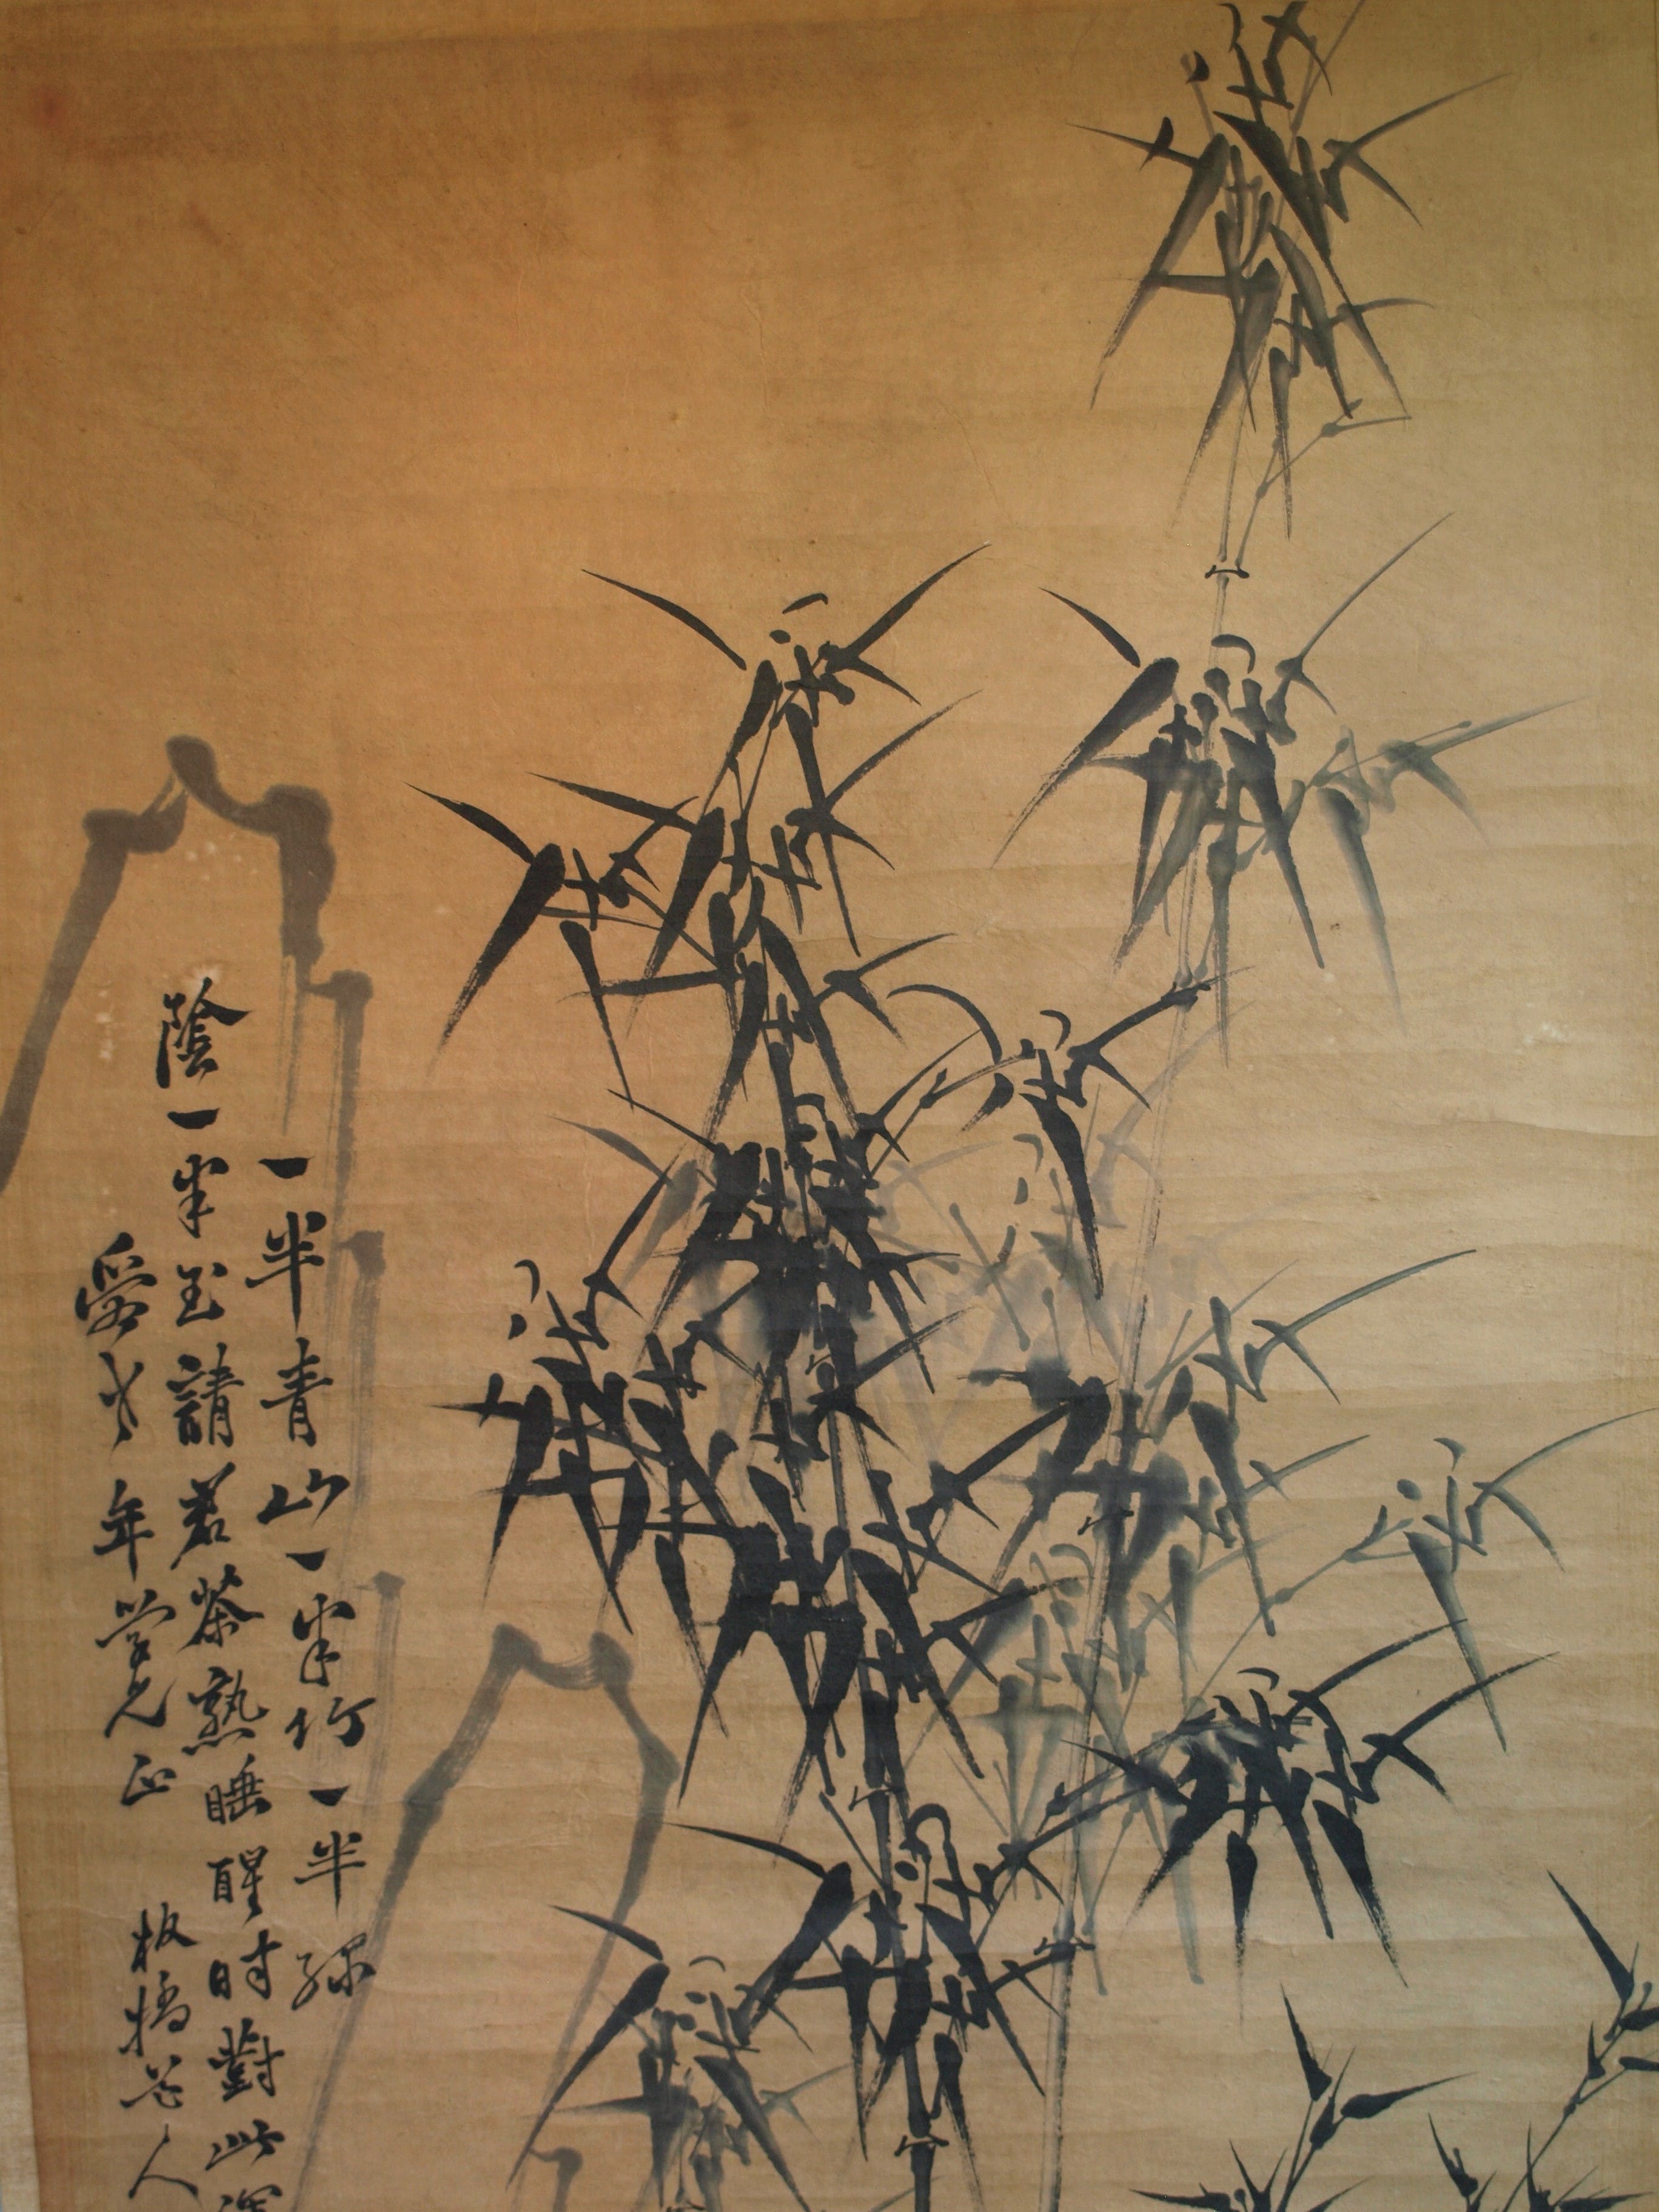 一半青山一半竹一半綠
陰一半玉請君茶熟睡醒時對此
愛年學兄正
板橋人